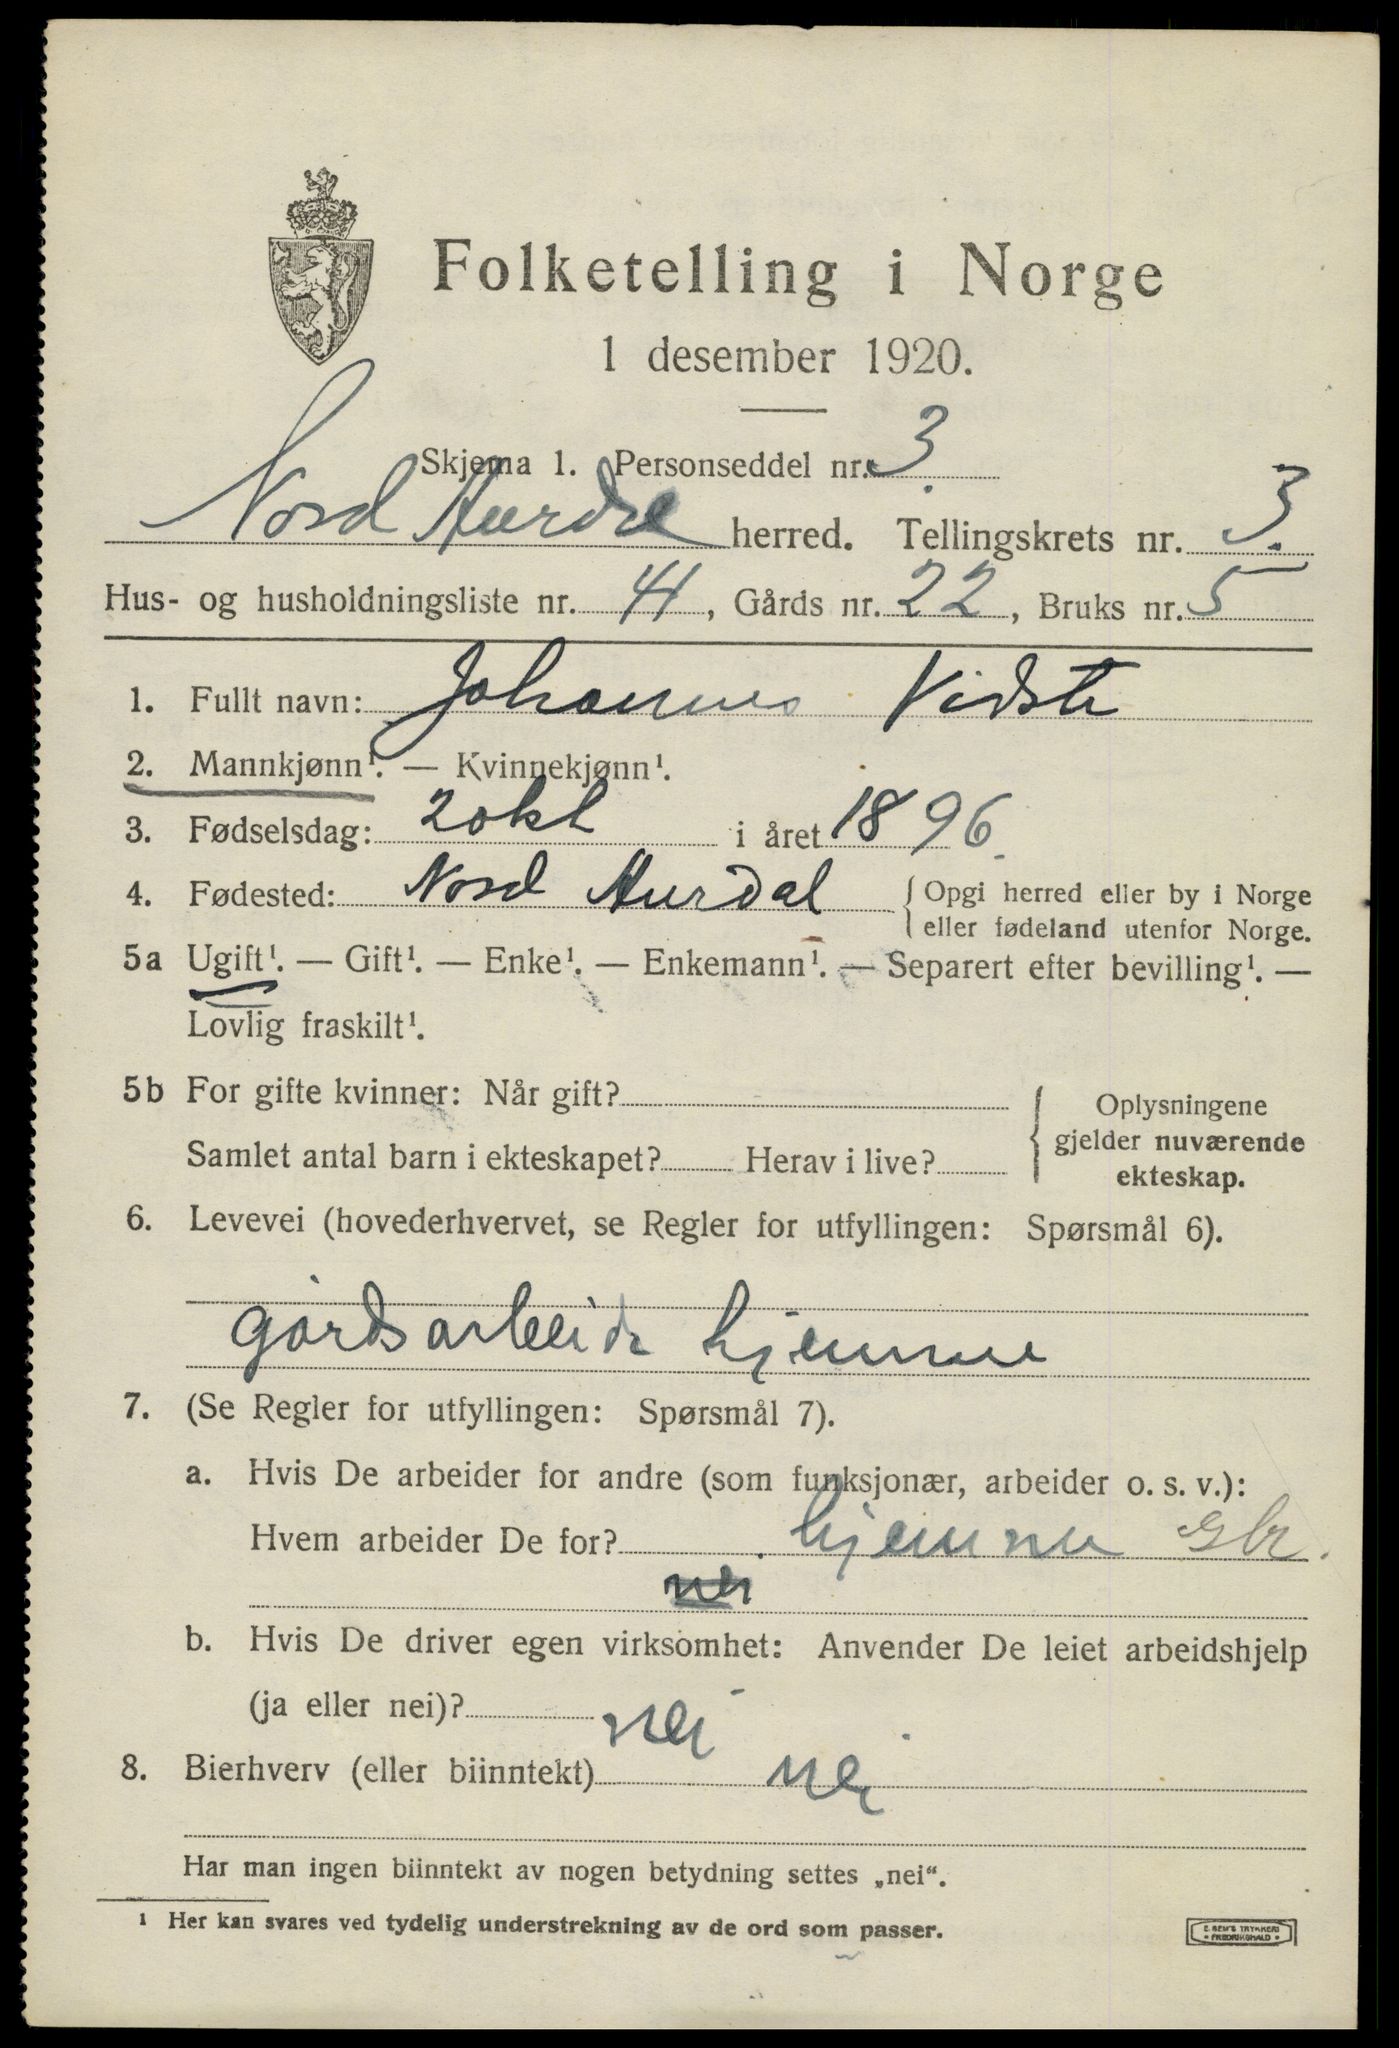 Folketelling i Norge
1 desember 1920.
Skjema 1. Personseddel nr. 3.
Nord Aurdal herred. Tellingskrets nr. 3.
Hus- og husholdningsliste nr. 41, Gårds nr. 22, Bruks nr. 5
1. Fullt navn: Johannes Vidste
2. Mannkjønn¹. — Kvinnekjønn¹.
3. Fødselsdag: 2 okt i året 1896.
4. Fødested: Nord Aurdal { Opgi herred eller by i Norge
eller fødeland utenfor Norge.
5a Ugift¹. — Gift¹. — Enke¹. — Enkemann¹. — Separert efter bevilling¹. —
Lovlig fraskilt¹.
5b For gifte kvinner: Når gift?
Samlet antal barn i ekteskapet? Herav i live?
{ Oplysningene
gjelder nuværende
ekteskap.
6. Levevei (hovederhvervet, se Regler for utfyllingen: Spørsmål 6).
gårdsarbeide hjemme
7. (Se Regler for utfyllingen: Spørsmål 7).
a. Hvis De arbeider for andre (som funksjonær, arbeider o. s. v.):
Hvem arbeider De for? hjemme Gbr.
nei
b. Hvis De driver egen virksomhet: Anvender De leiet arbeidshjelp
(ja eller nei)? nei
8. Bierhverv (eller biinntekt) nei
Har man ingen biinntekt av nogen betydning settes „nei“.
¹ Her kan svares ved tydelig understrekning av de ord som passer.
E. SEM'S TRYKKERI
• FREDRIKSHALD •